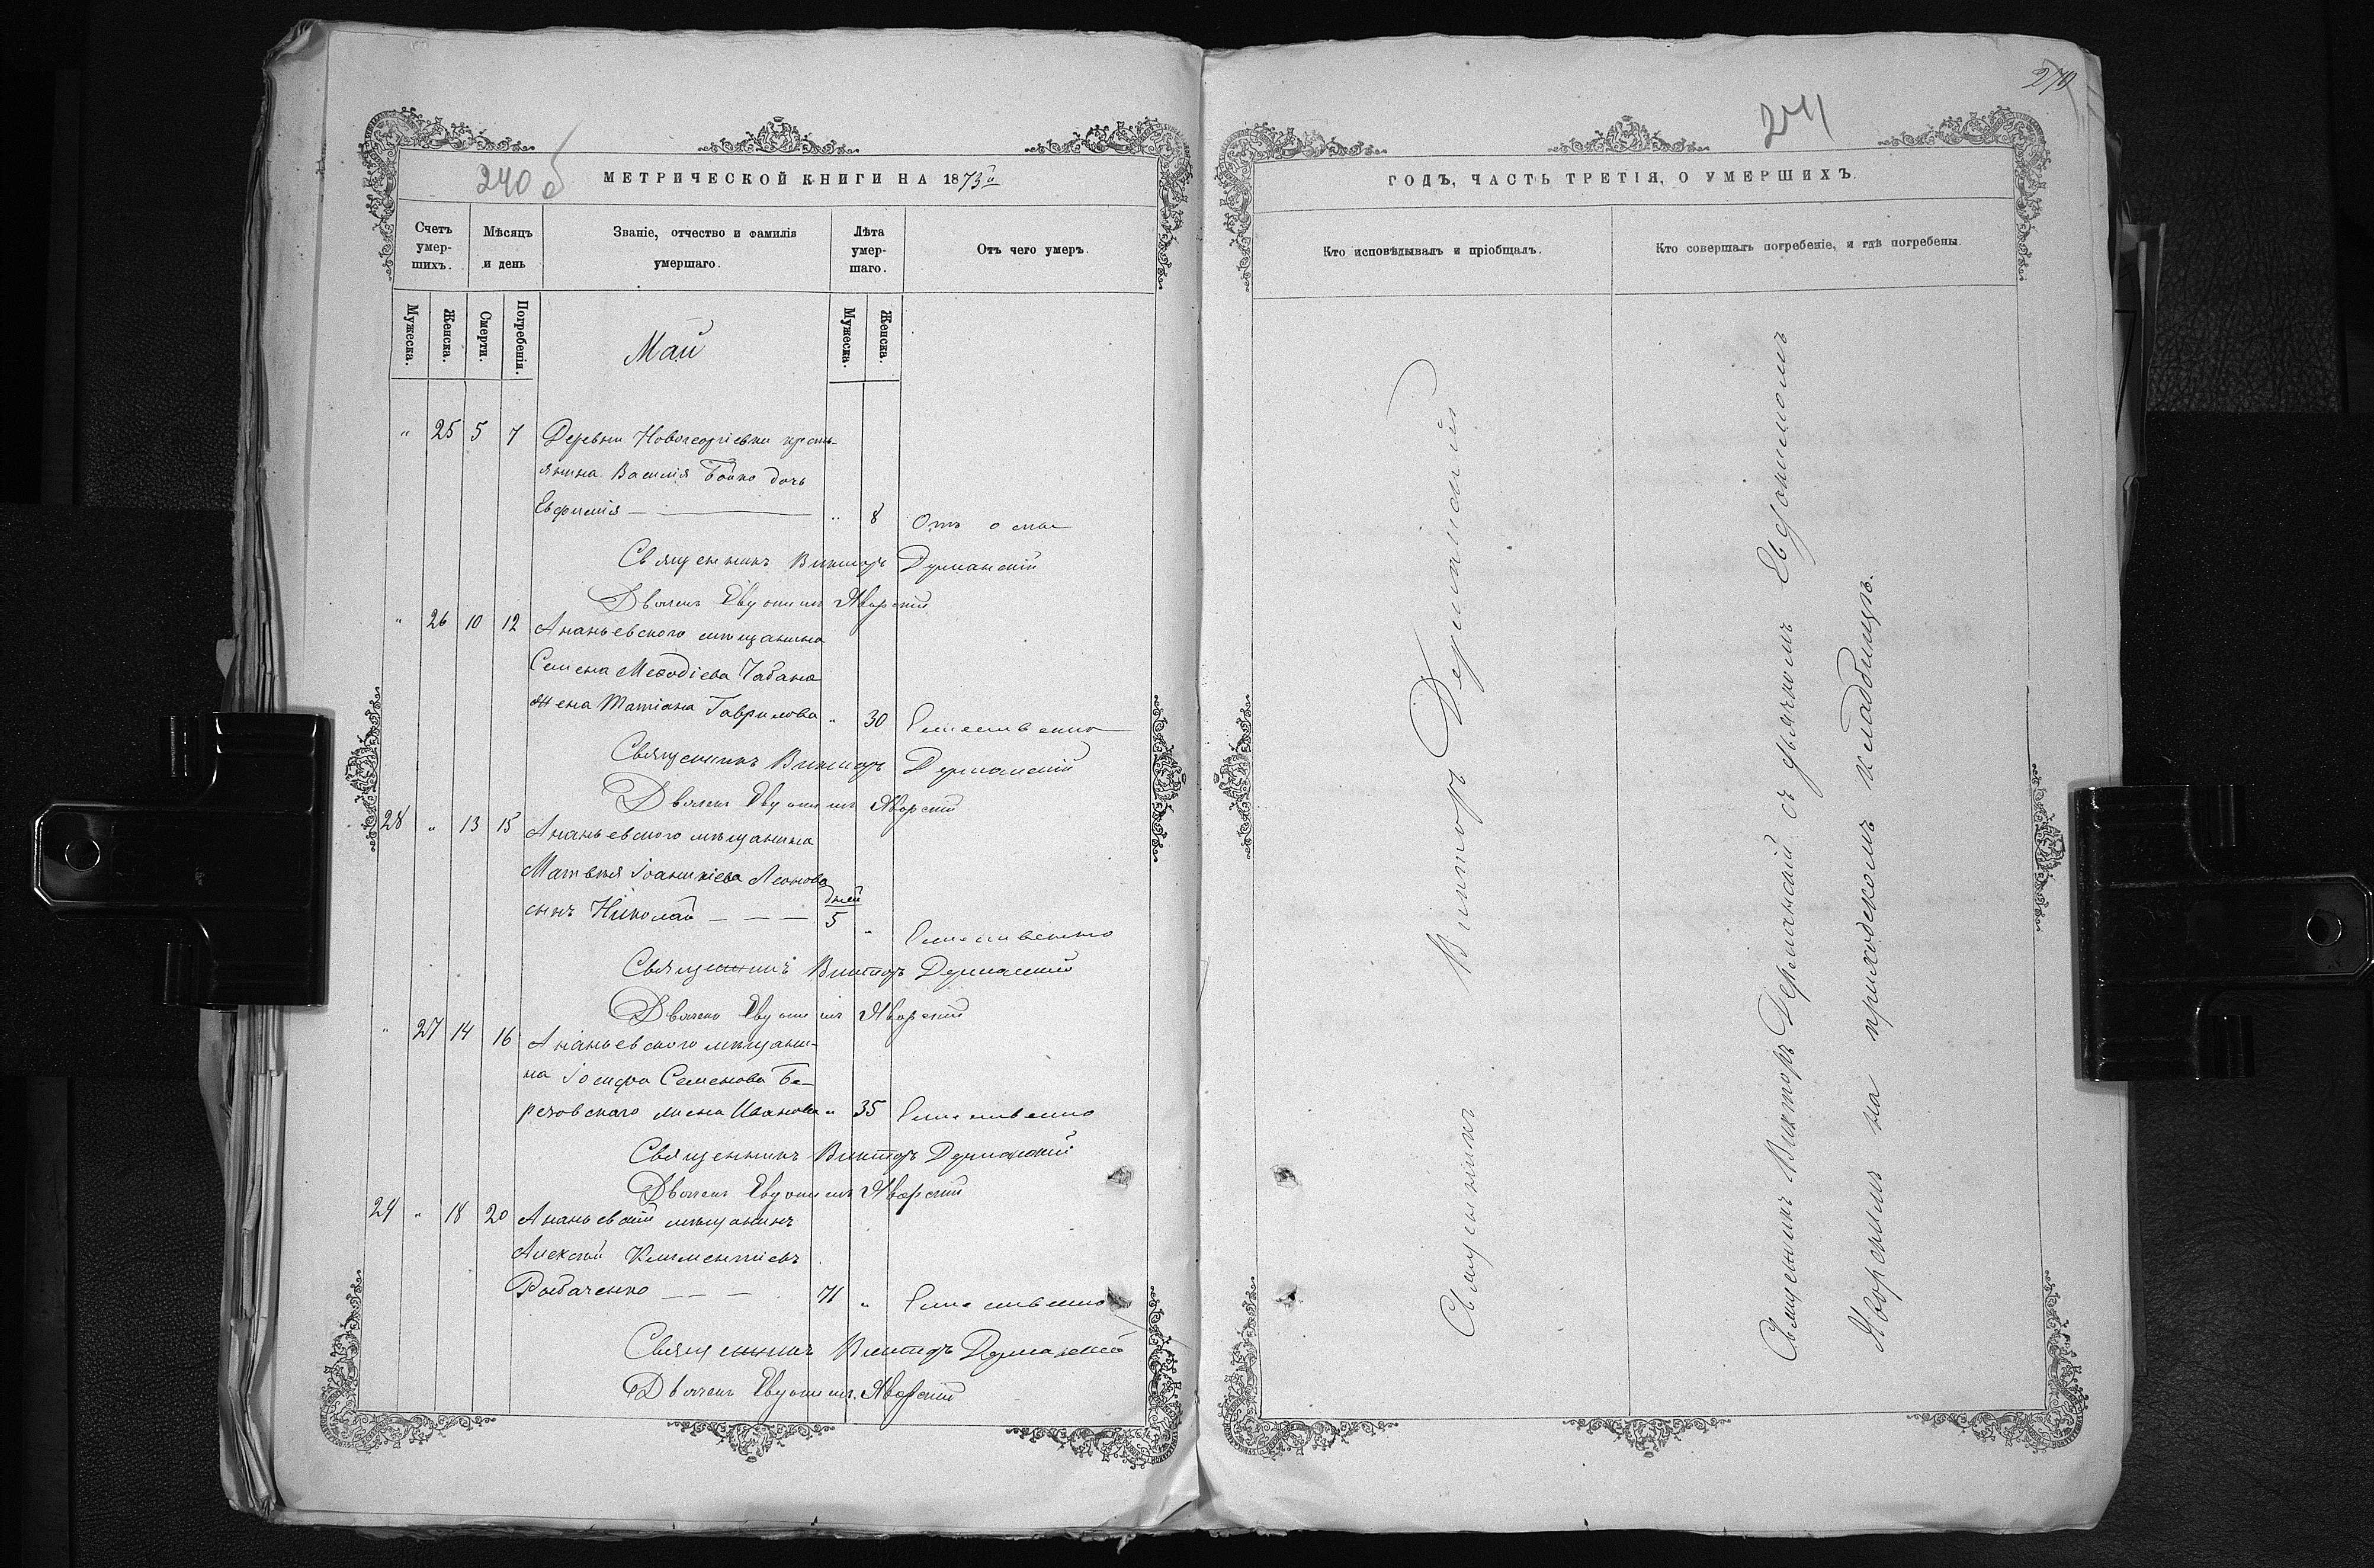 240 об
МЕТРИЧЕСКОЙ КНИГИ НА 1873й
Счетъ умер-шихъ.
Мѣсяцъ и день
Званіе, отчество и фамилія умершаго.
Лѣта умер-шаго.
Отъ чего умеръ.
Мужеска.
Женска.
Смерти.
Погребенія.
Мужеска.
Женска.
Май
" 25 5 7 Деревни Новогеоргіевки кресть-
янина Василія Бойко дочь
Евфимія " 8 Отъ оспы
Священникъ Викторъ Дерманскій
Дьячекъ Евфонимъ Яворскій
" 26 10 12 Ананьевского мѣщанина
Семена Меѳодіева Чабана
жена Татіана Гаврилова " 30 Естественно
Священникъ Викторъ Дерманскій
Дьячекъ Евфонимъ Яворскій
28 " 13 15 Ананьевского мѣщанина
Матвѣя Іоанникіева Леонова
дней
сынъ Николай 5 " Естественно
Священникъ Викторъ Дерманскій
Дьячекъ Евфонимъ Яворскій
" 27 14 16 Ананьевского мѣщани-
на Іосифа Семенова Бе-
резовскаго жена Иванова " 35 Естественно
Священникъ Викторъ Дерманскій
Дьячекъ Евфонимъ Яворскій
29 " 18 20 Ананьевскій мѣщанинъ
Алексѣй Климентіевъ
Рыбаченко 71 " Естественно
Священникъ Викторъ Дерманскій
Дьячекъ Евфонимъ Яворскій
270
241
ГОДЪ, ЧАСТЬ ТРЕТІЯ, О УМЕРШИХЪ.
Кто исповѣдывалъ и пріобщалъ.
Кто совершалъ погребеніе, и гдѣ погребены.
Священникъ Викторъ Дерманскій
Священникъ Викторъ Дерманскій съ дьячкомъ Евфонимомъ
Яворскимъ на приходскомъ кладбищѣ.